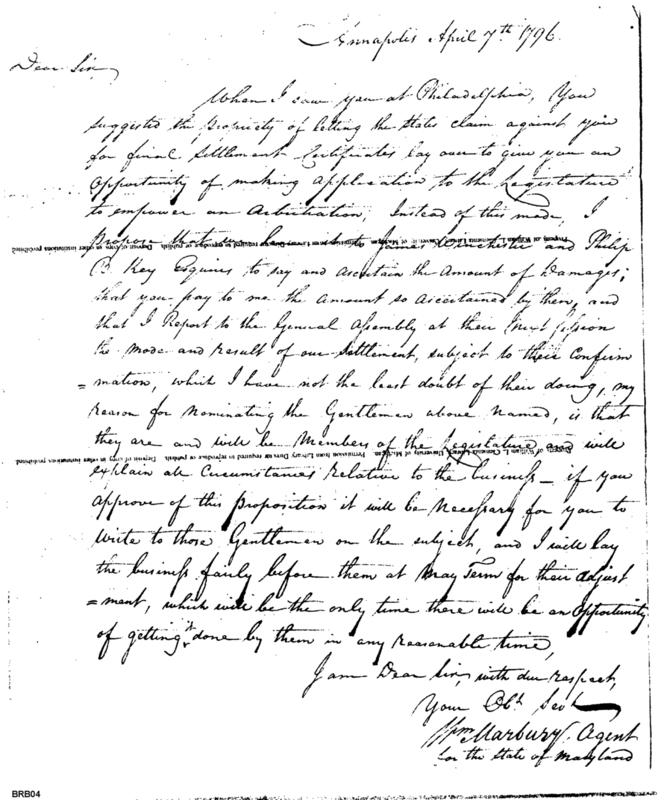 Annapolis April 7th 1796.
Dear Sir,
When I saw you at Philadelphia, You
suggested the propriety of letting the States claim against you
for final Settlement Certificates lay over to give you an
Opportunity of making application to the Legislature
to empower an Arbitration, Instead of this mode, I
Propose that James Winchester and Philip
B. Key Esquires to say and ascertain the Amount of Damages;
that you pay to me the Amount so ascertained by them, and
that I Report to the General Assembly at their Next Session
the Mode and Result of our Settlement, subject to their Confirm
=mation, which I have not the least doubt of their doing, my
reason for Nominating the Gentlemen above Named, is that
they are and will be Members of the Legislature and will
explain all Circumstances Relative to the business – if you
approve of this Proposition it will be Necessary for you to
Write to those Gentlemen on the subject, and I will lay
the business fairly before them at May Term for their adjust
=ment, which will be the only time there will be an Opportunity
of getting it done by them in any reasonable time,
I am Dear Sir, with due respect,
Your Obt Servt
Wm Marbury. Agent
for the State of Maryland
BRB04